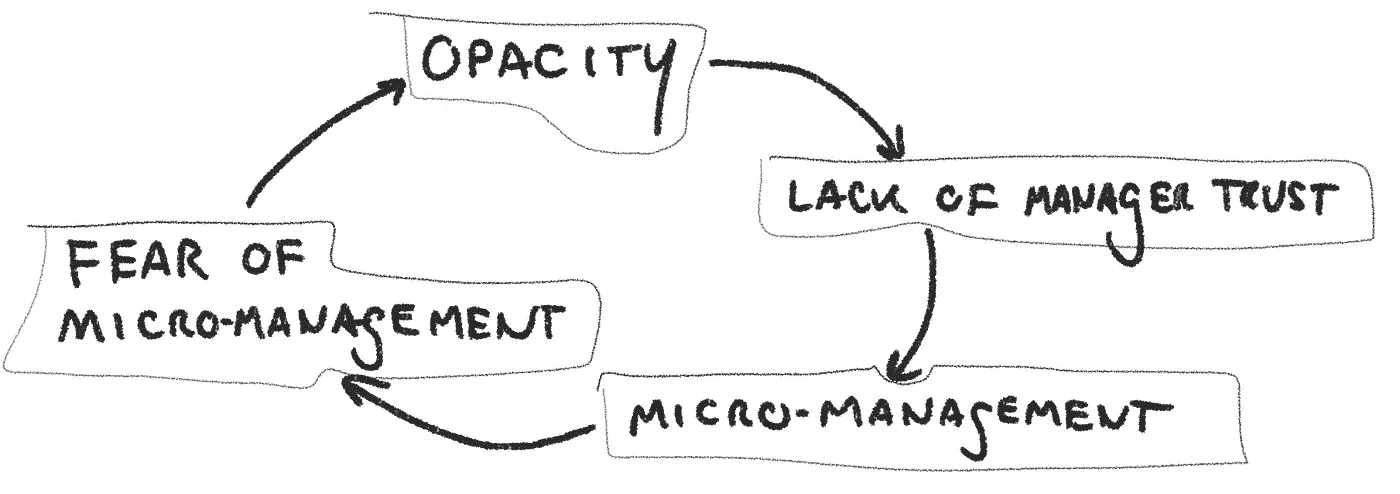 OPACITY
LACK OF MANAGER TRUST
FEAR OF
MICRO-MANAGEMENT
MICRO-MANAGEMENT